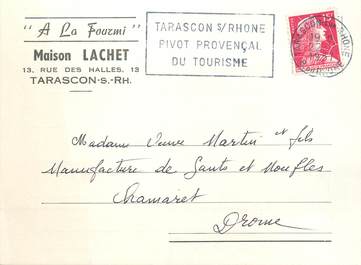 "A La Fourmi"
Maison LACHET
13, RUE DES HALLES, 13
TARASCON-S.-RH.
TARASCON S/ RHONE
PIVOT PROVENÇAL
DU TOURISME
TARASCON S/ RHONE
19
Madame Veuve Martin et fils
Manufacture de Gants et Moufles
Chamaret
Drome